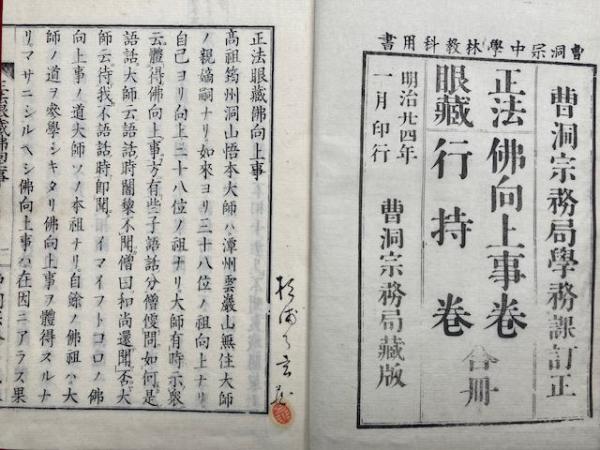 曹洞宗中學林敎科用書
曹洞宗務局學務課訂正
正法眼藏
佛向上事卷
行持卷
合冊
明治廿四年
一月印行
曹洞宗務局藏版
正法眼藏佛向上事
高祖筠州洞山悟本大師ハ潭州雲巖山無住大師
ノ親嫡嗣ナリ如來ヨリ三十八位ノ祖向上ナリ
自己ヨリ向上三十八位ノ祖ナリ大師有時示衆
云體得佛向上事方有些子語話分僧便問如何是
語話大師云語話時闍黎不聞僧曰和尚還聞否大
師云待我不語話時卽聞イマイフトコロノ佛
向上事ノ道大師ソノ本祖ナリ自餘ノ佛祖ハ大
師ノ道ヲ參學シキタリ佛向上事ヲ體得スルナ
リマサニシルヘシ佛向上事ハ在因ニアラス果